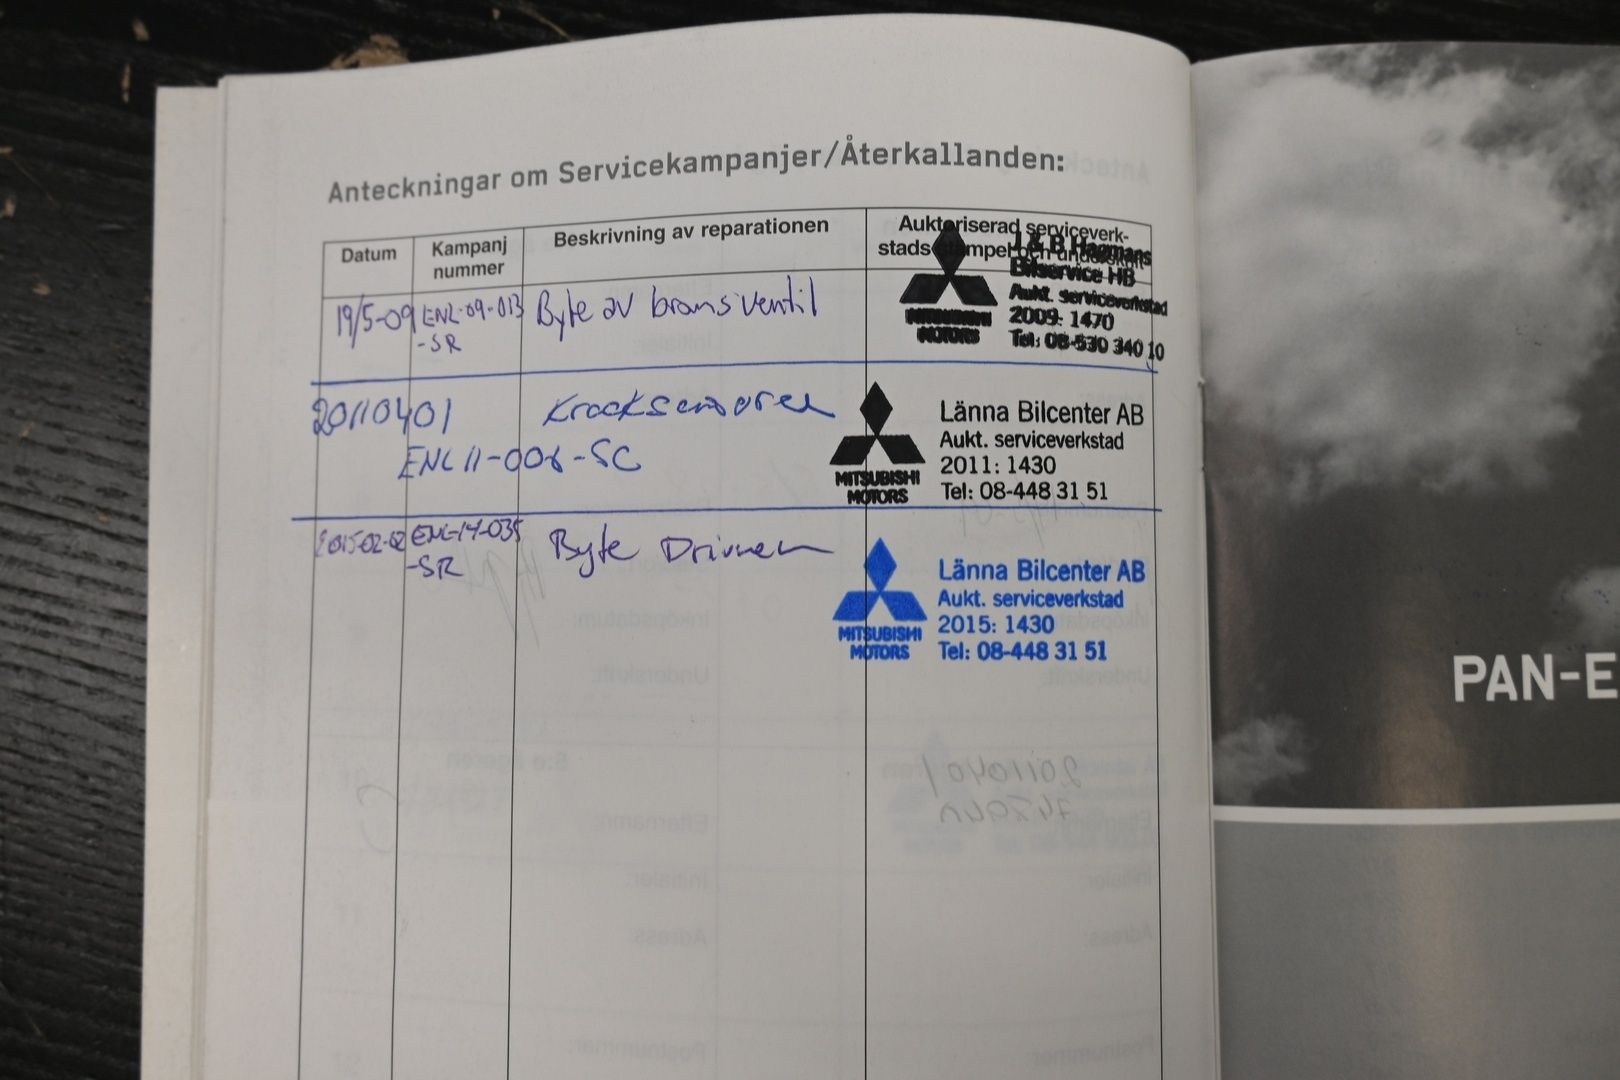 Anteckningar om Servicekampanjer/Återkallanden:
Datum
Kampanj
nummer
Beskrivning av reparationen
Auktoriserad serviceverk-
19/5-09
ENL-09-013
-SR
Byte av bromsventil
J & B Hagmans
Bilservice HB
Aukt. serviceverkstad
2009: 1470
Tel: 08-530 340 10
MITSUBISHI
MOTORS
20110401
Krocksensorer
ENL 11-006-SC
MITSUBISHI
MOTORS
Länna Bilcenter AB
Aukt. serviceverkstad
2011: 1430
Tel: 08-448 31 51
2015-02-02
ENL-14-035
-SR
Byte Drivrem
MITSUBISHI
MOTORS
Länna Bilcenter AB
Aukt. serviceverkstad
2015: 1430
Tel: 08-448 31 51
PAN-E